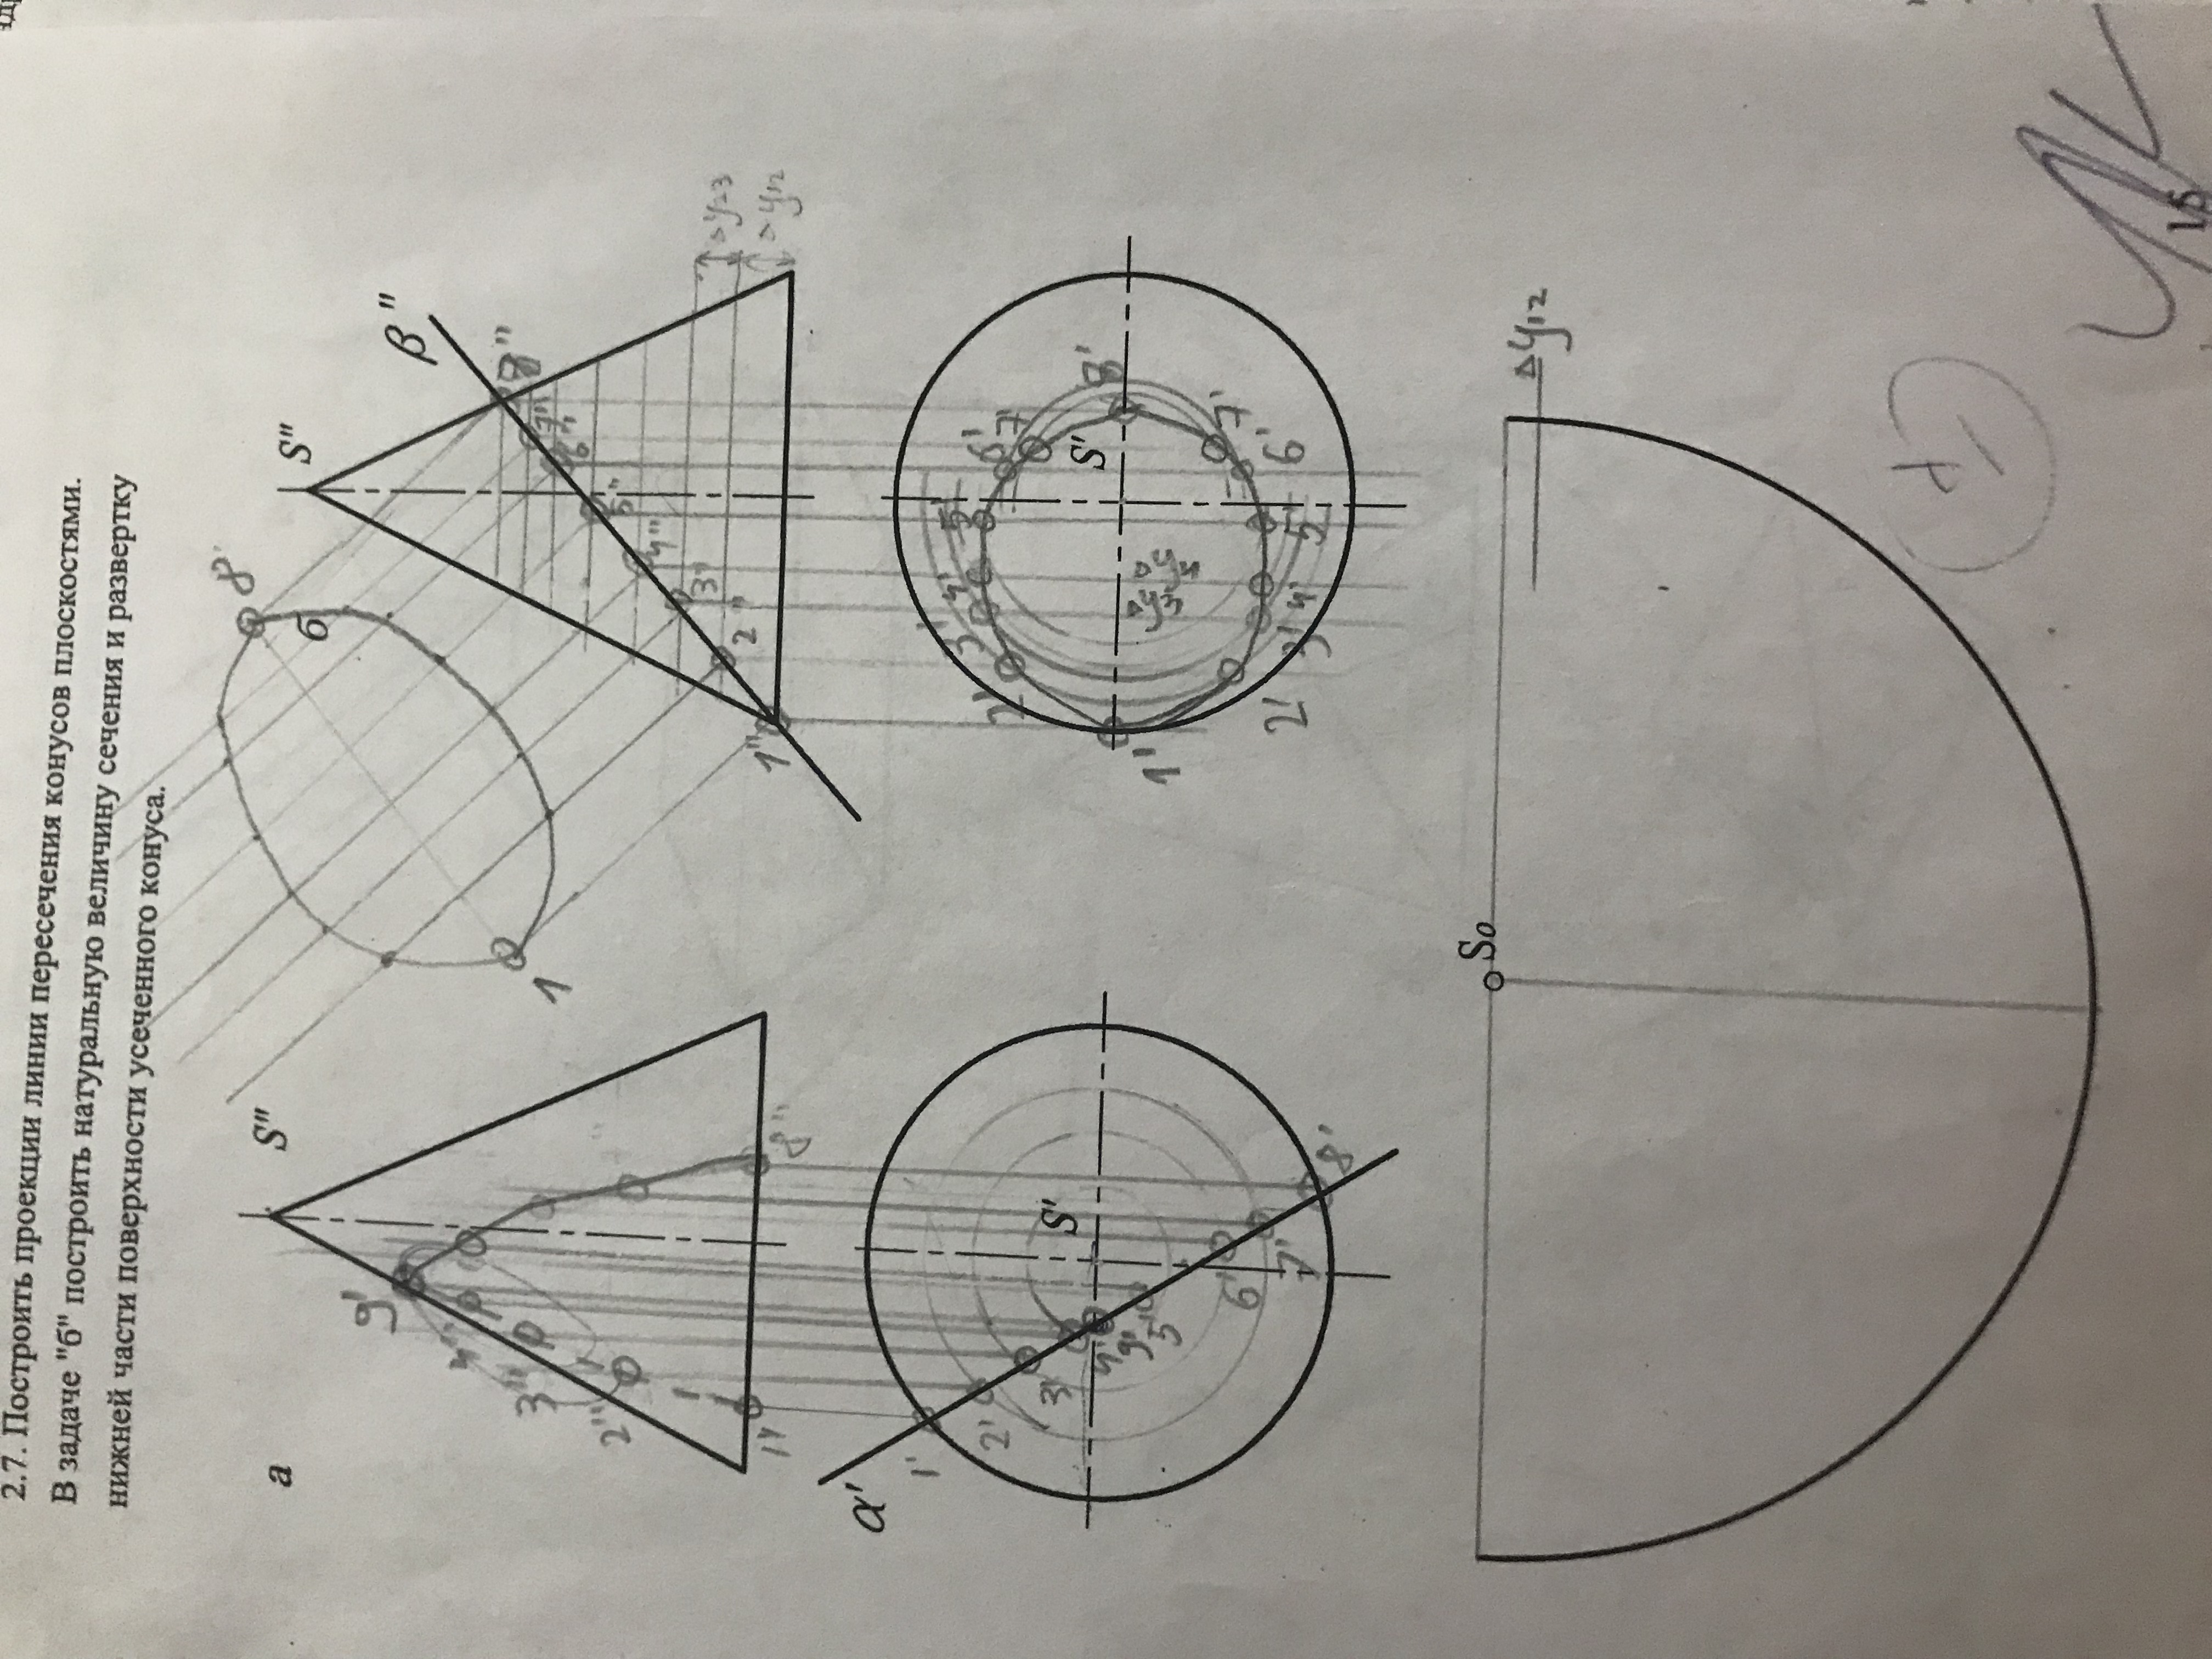 2.7. Построить проекции линии пересечения конусов плоскостями.
В задаче "б" построить натуральную величину сечения и развертку
нижней части поверхности усеченного конуса.
а
S"
9'
4"
3"
2"
1"
8"
8'
б
1
S"
β"
8"
7"
6"
5"
4"
3"
2"
1"
Δy23
Δy12
α'
1'
2'
3'
4'
9'
5'
6'
7'
8'
S'
2'
3'
4'
5'
6'
7'
8'
S'
1'
Δy3
Δy4
2'
3'
4'
5'
6'
7'
S₀
Δy12
15